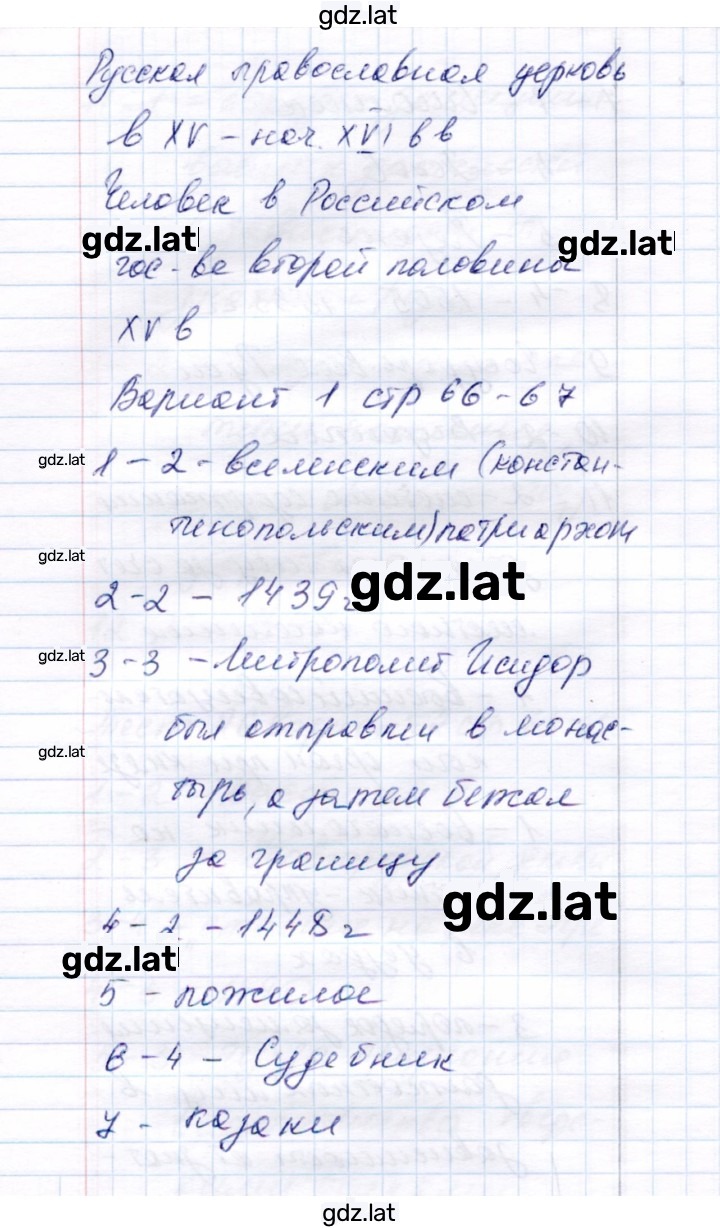 gdz.lat
Русская православная церковь
в XV – нач. XVI в в
Человек в Российском
gdz.lat
gdz.lat
гос-ве второй половины
XV в
Вариант 1 стр 66-67
gdz.lat
1 – 2 - вселенским (констан-
тинопольским) патриархом
gdz.lat
2-2 – 1439г
gdz.lat
gdz.lat
3-3 – Митрополит Исидор
был отправлен в монас-
gdz.lat
тырь, а затем бежал
за границу
gdz.lat
4-2 – 1448г
gdz.lat
5 – пожилое
6-4 – Судебник
7 - казаки
gdz.lat